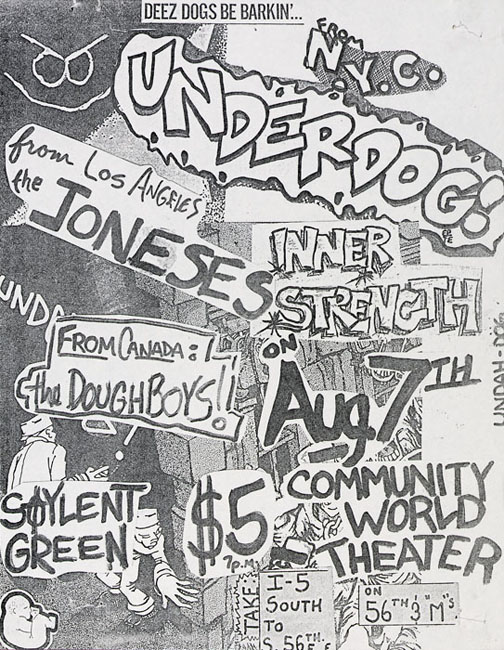 DEEZ DOGS BE BARKIN'...
FROM
N.Y.C.
UNDERDOG!
from Los ANGELES
the JONESES
INNER
STRENGTH
UND
FROM CANADA:
the DOUGHBOYS!!
ON
Aug. 7TH
UNDAH DOG
SOYLENT
GREEN
$5
7 p.m.
COMMUNITY
WORLD
THEATER
TAKE
I-5
SOUTH
TO
S. 56TH.
ON
56TH & "M"S.